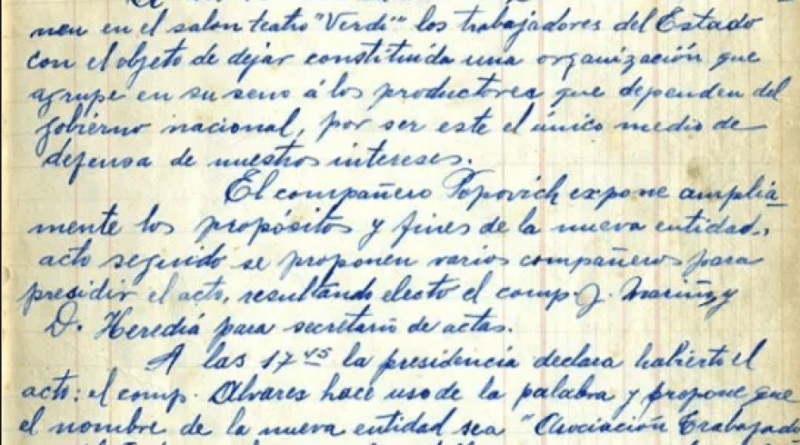 nen en el salon teatro "Verdi" los trabajadores del Estado
con el objeto de dejar constituida una organización que
agrupe en su seno á los productores que dependen del
gobierno nacional, por ser este el único medio de
defensa de nuestros intereses.
El compañero Popovich expone amplia-
mente los propósitos y fines de la nueva entidad,
acto seguido se proponen varios compañeros para
presidir el acto, resultando electo el comp. J. Mariño y
D. Heredia para secretario de actas.
A las 17 45 la presidencia declara habierto el
acto: el comp. Alvares hace uso de la palabra y propone que
el nombre de la nueva entidad sea "Asociación Trabajado